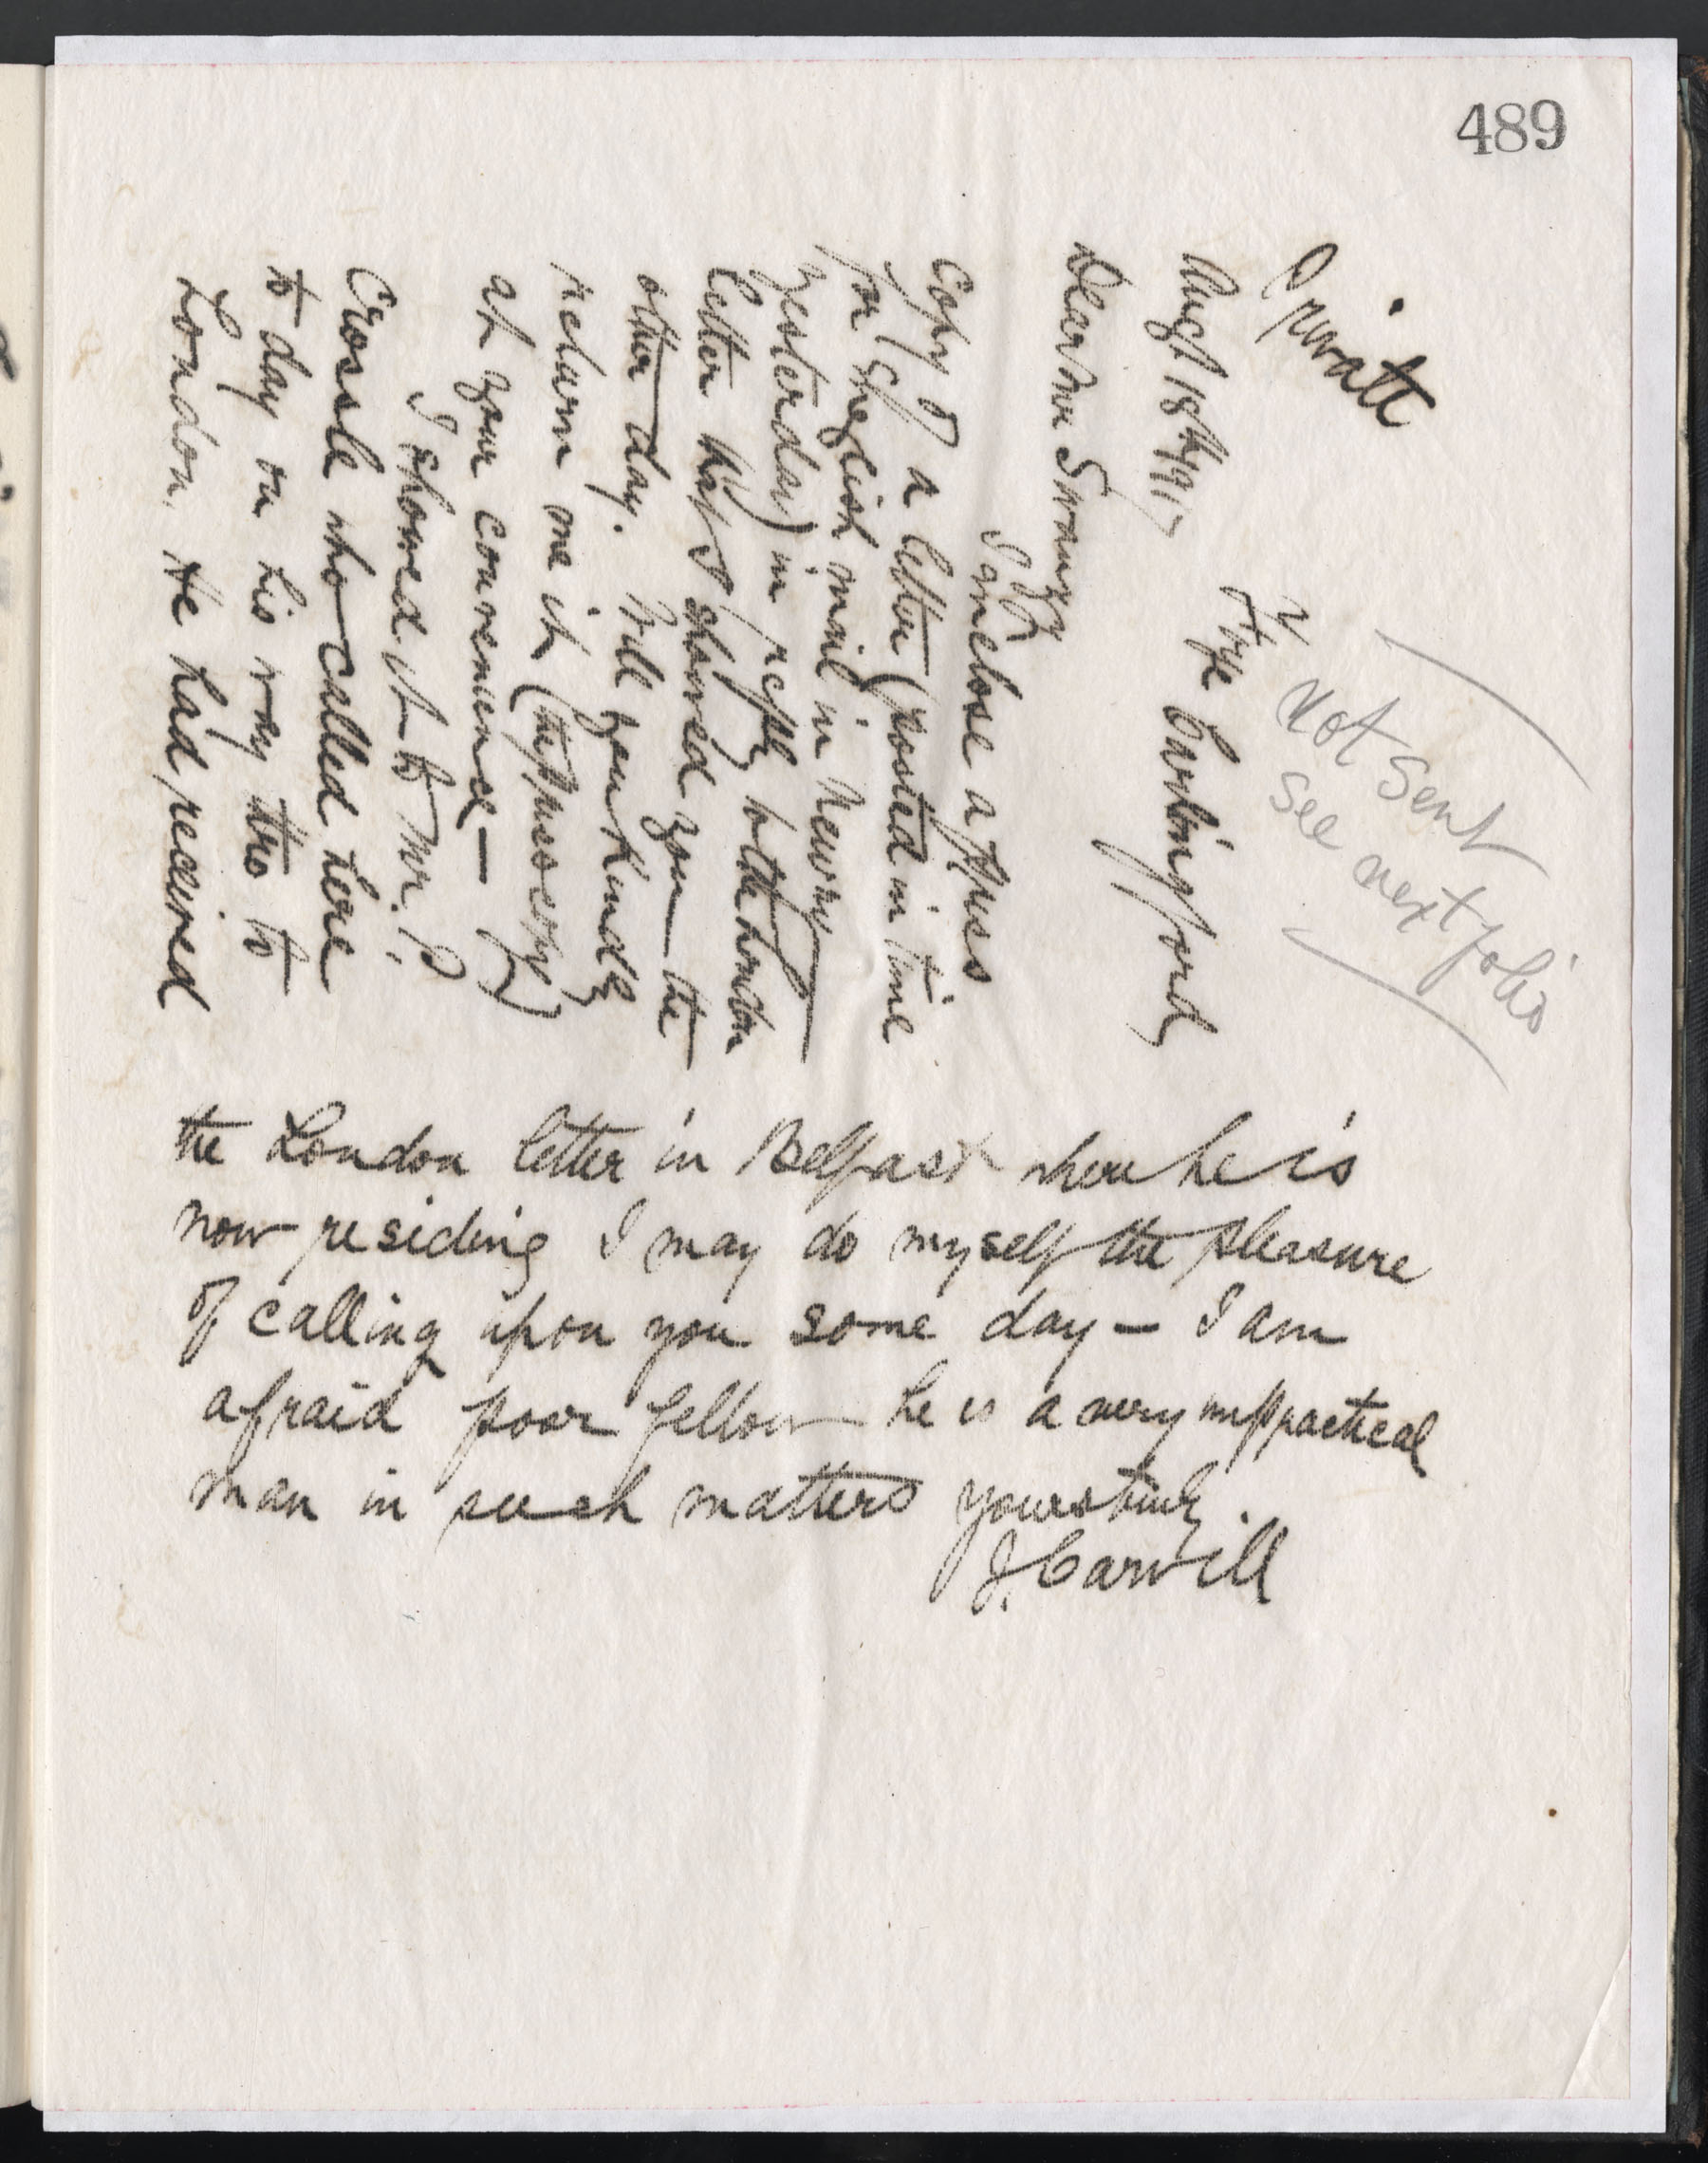 489
Private
Not sent
see next folio
Augt 18th/91
Hze Carlingford
Dear Mr Swanzy
I enclose a press
copy of a letter (posted in time
for English mail in Newry
yesterday) in reply to the London
letter that I showed you the
other day. Will you kindly
return me it (the press copy)
at your convenience —
I showed it to Mr. P
Crossle who called here
to day on his way thro to
London. He had received
the London letter in Belfast where he is
now residing I may do myself the pleasure
of calling upon you some day — I am
afraid poor fellow he is a very unpractical
man in such matters yours truly.
J. Carvill